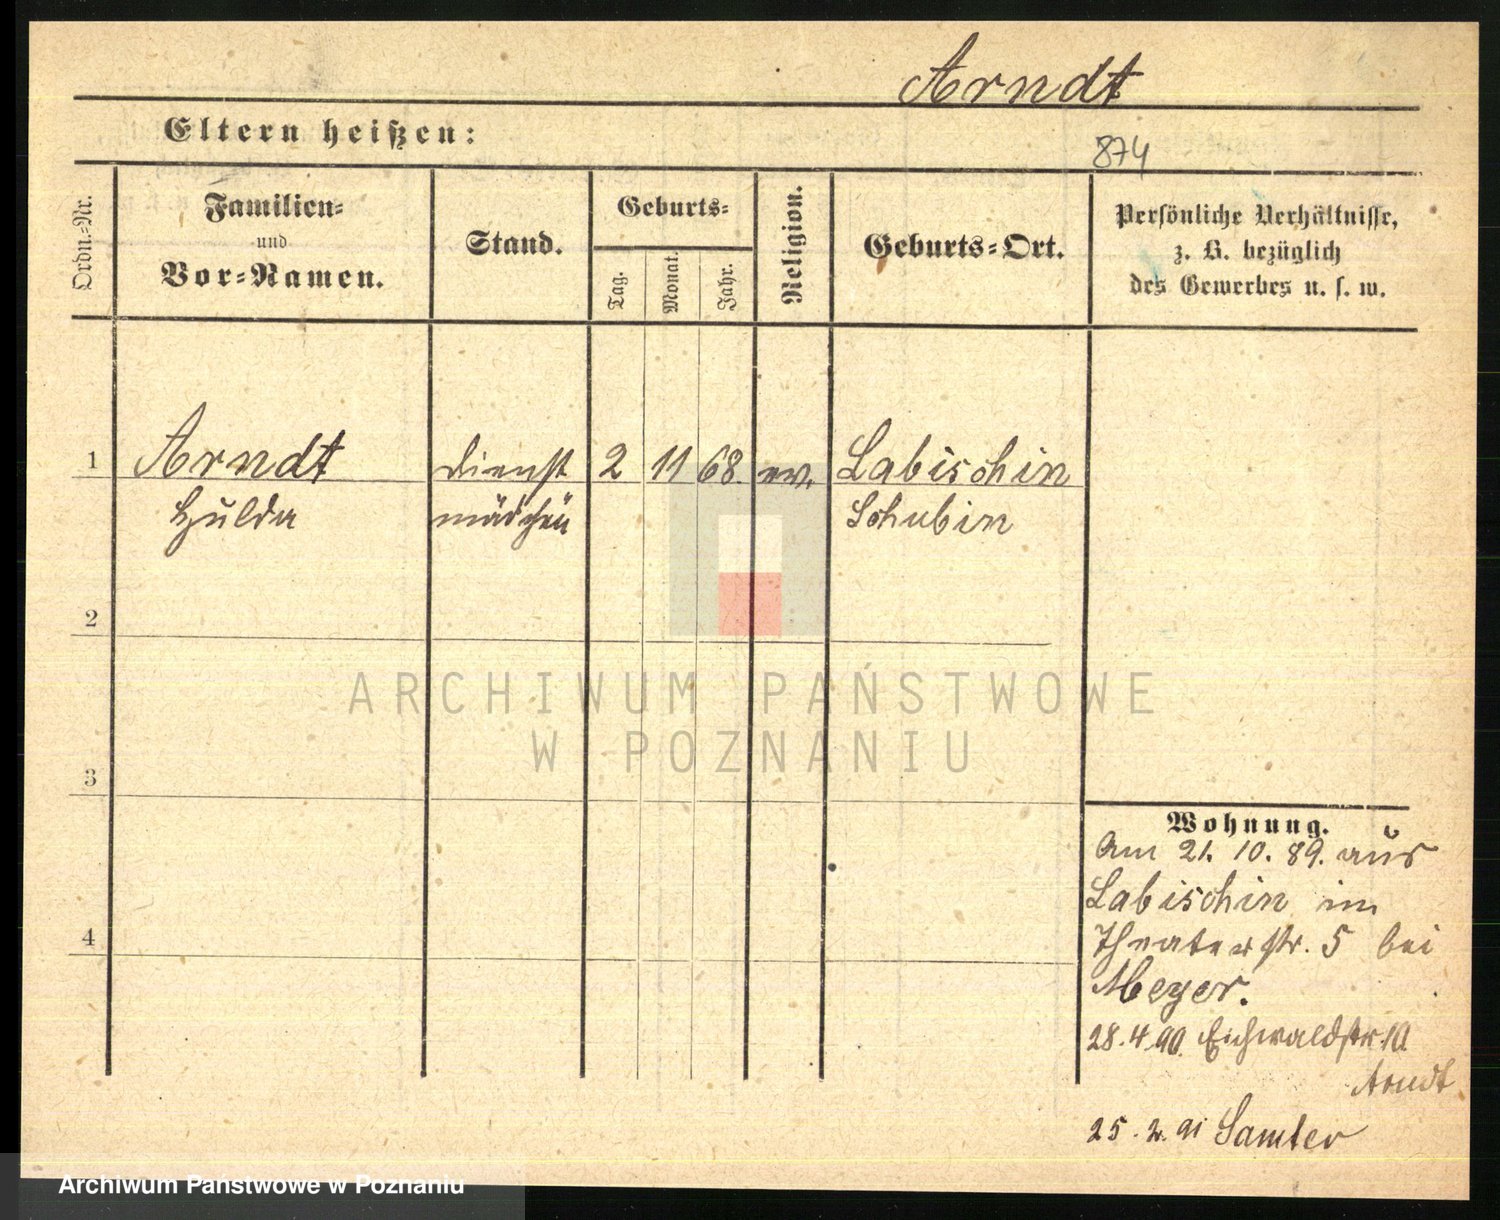 Arndt
Eltern heißen:
874
Ordn.-Nr.
Familien-
und
Vor-Namen.
Stand.
Geburts-
Tag.
Monat.
Jahr.
Religion.
Geburts-Ort.
Persönliche Verhältnisse,
z. B. bezüglich
des Gewerbes u. s. w.
1 Arndt dienst 2 11 68. ev. Labischin
Hulda mädchen Schubin
2
3
4
Wohnung.
Am 21. 10. 89. aus
Labischin im
Theaterstr. 5 bei
Meyer.
28.4.90. Eichwaldstr. 10
Arndt
25. 2. 91 Samter
ARCHIWUM PAŃSTWOWE
W POZNANIU
Archiwum Państwowe w Poznaniu